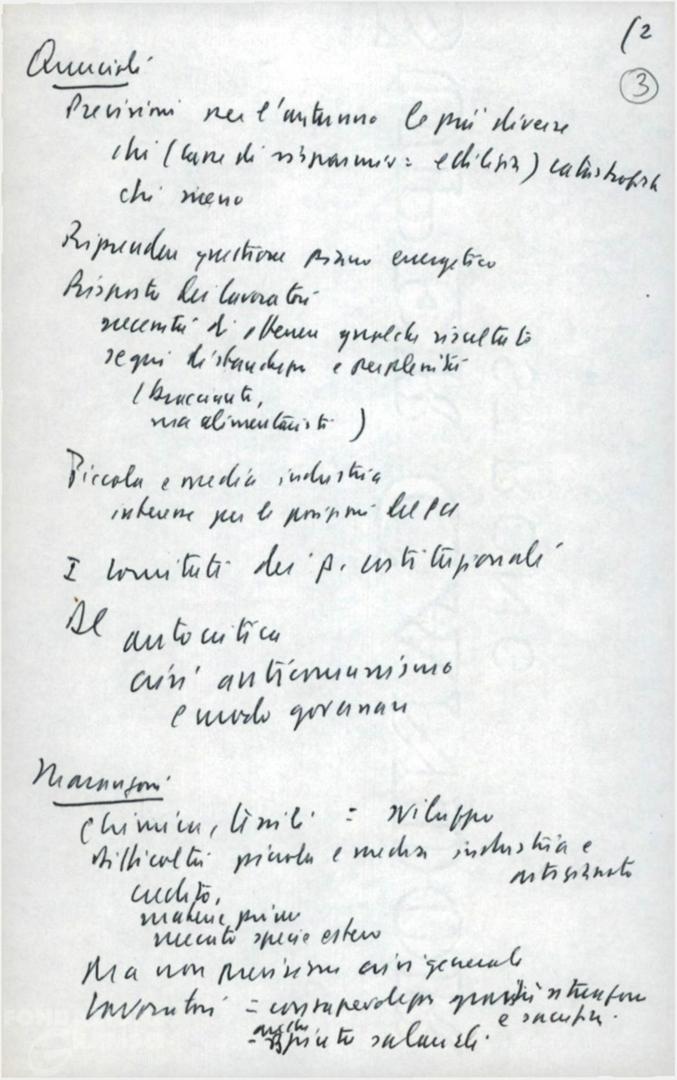 (2
3
Quercioli
Previsioni per l'autunno le più diverse
chi (casse di risparmio = edilizia) catastrofica
chi meno
Riprendere questione piano energetico
Risposta dei lavoratori
necessità di ottenere qualche risultato
segni di stanchezza e perplessità
(braccianti,
ma alimentaristi)
Piccola e media industria
interesse per le posizioni del PCI
I comitati dei p. costituzionali
autocritica
crisi anticomunismo
e modo governare
Marangoni
Chimica, tessili = sviluppo
difficoltà piccola e media industria e
artigianato
credito,
materie prime
mercato specie estero
Ma non previsione crisi generale
Lavoratori = consapevolezza gravità situazione
e sacrifici.
= anche spinte salariali.